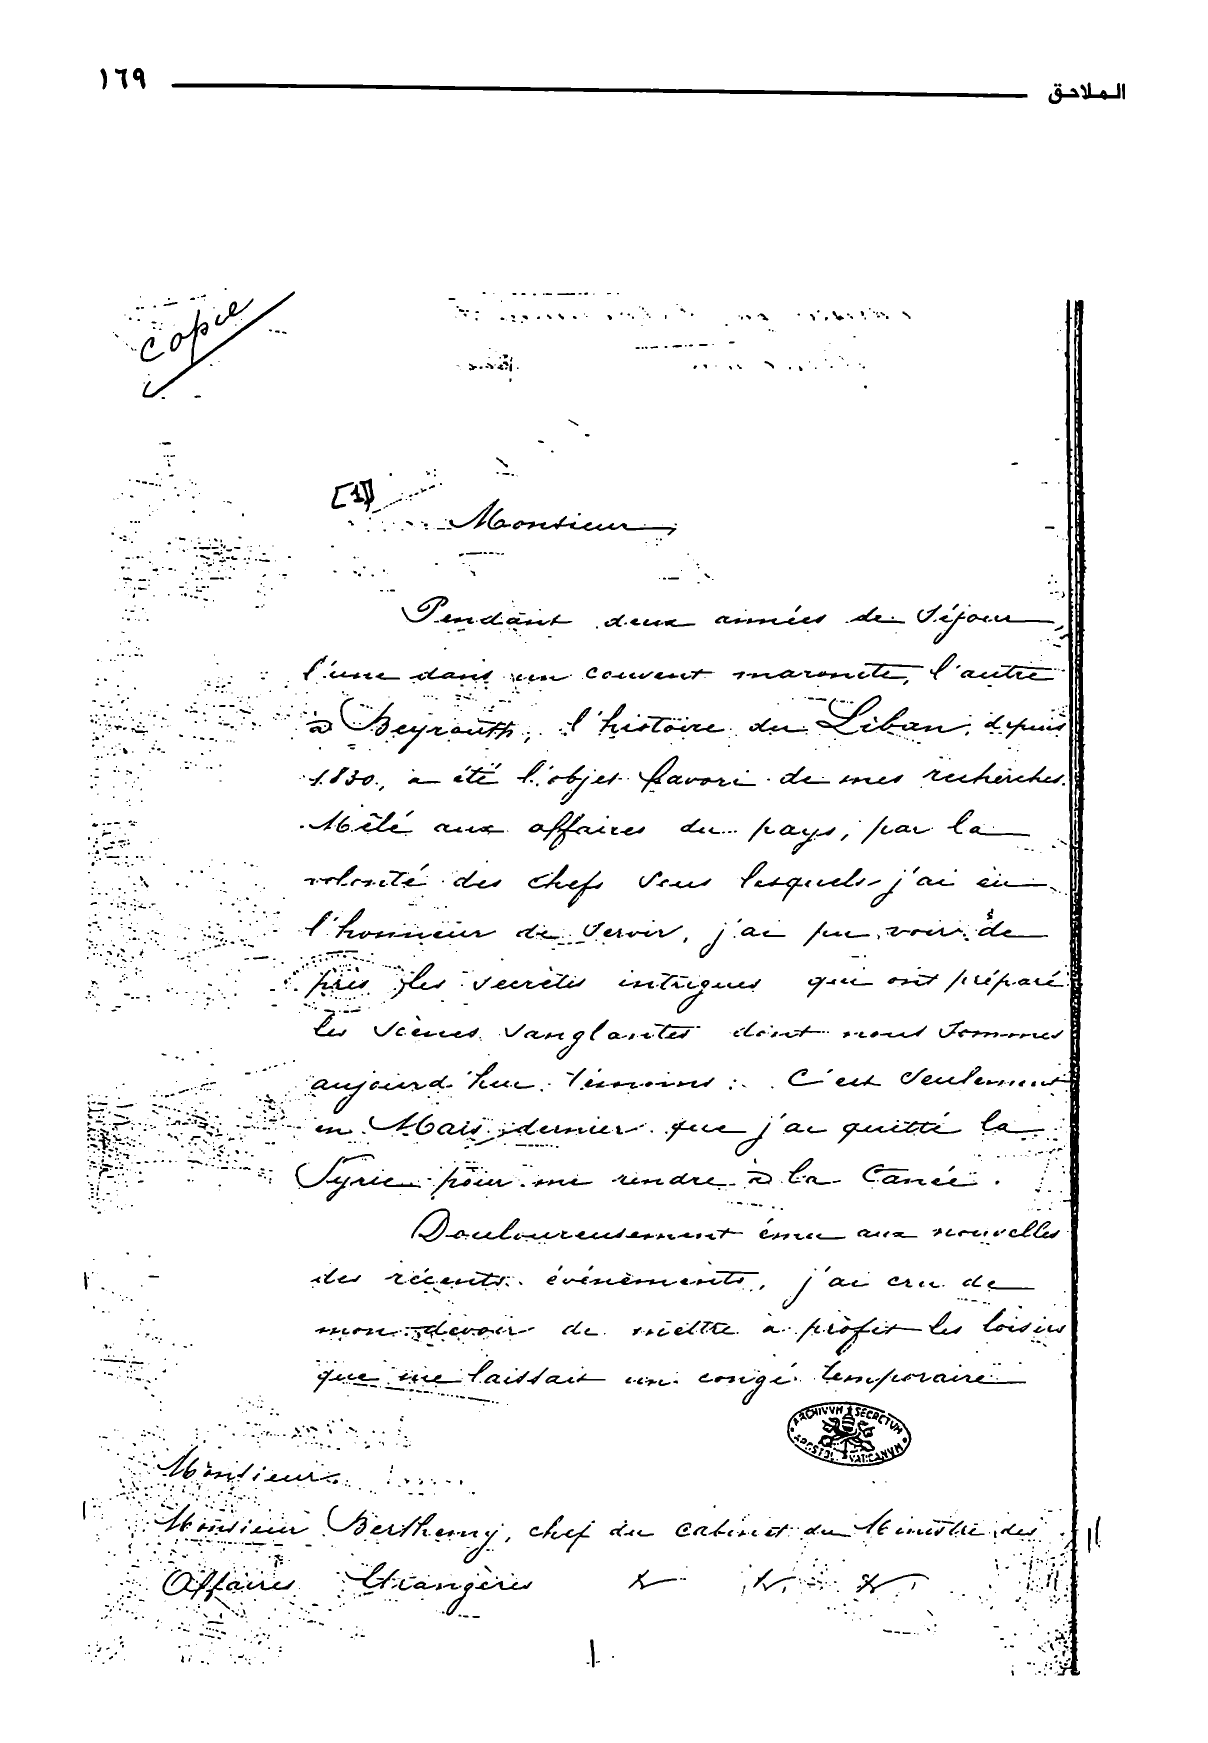 الملاحق ١٦٩
Copie
[1]
Monsieur,
Pendant deux années de séjour,
l'une dans un couvent maronite, l'autre
à Beyrouth, l'histoire du Liban, depuis
1830, a été l'objet favori de mes recherches.
Mêlé aux affaires du pays, par la
volonté des chefs sous lesquels j'ai eu
l'honneur de servir, j'ai pu voir de
près les secrètes intrigues qui ont préparé
les scènes sanglantes dont nous sommes
aujourd'hui témoins. C'est seulement
en Mars dernier que j'ai quitté la
Syrie pour me rendre à la Canée.
Douloureusement ému aux nouvelles
des récents événements, j'ai cru de
mon devoir de mettre à profit les loisirs
que me laissait un congé temporaire
ARCHIVVM SECRETVM APOSTOL. VATICANVM
Monsieur
Monsieur Berthemy, chef du Cabinet du Ministre des
Affaires Etrangères